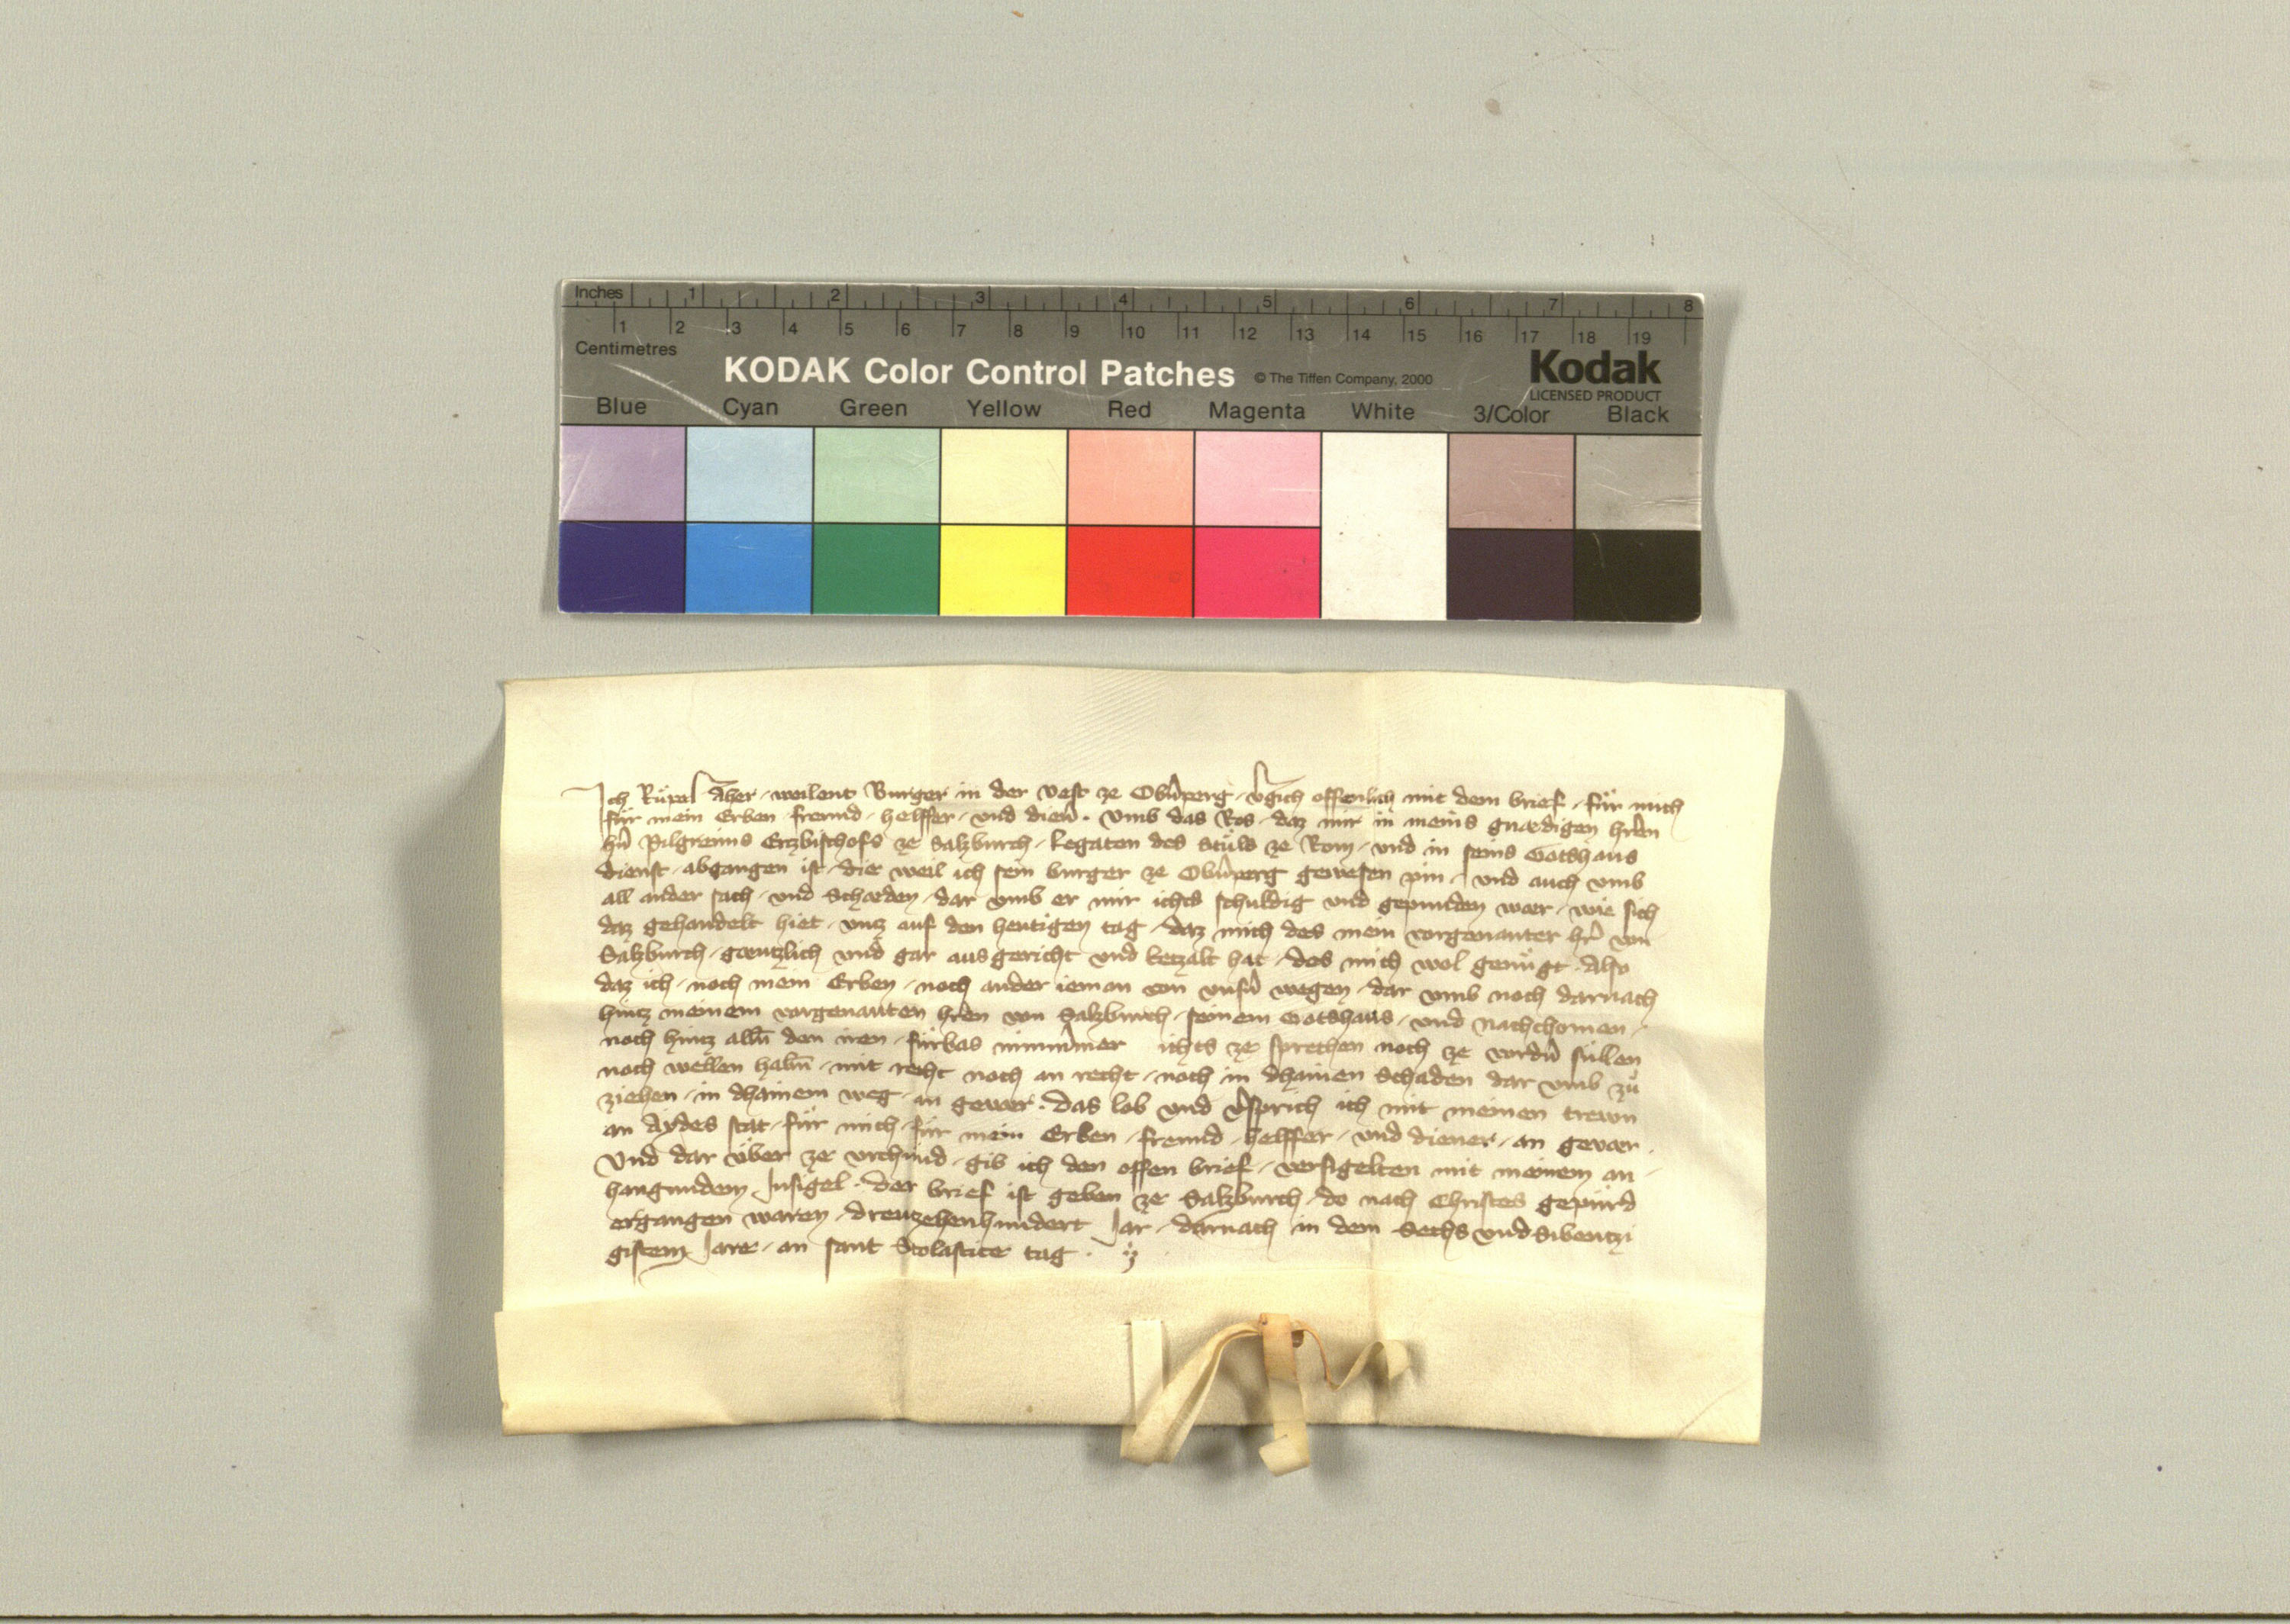 Inches 1 2 3 4 5 6 7 8
1 2 3 4 5 6 7 8 9 10 11 12 13 14 15 16 17 18 19
Centimetres
KODAK Color Control Patches © The Tiffen Company, 2000 Kodak
LICENSED PRODUCT
Blue Cyan Green Yellow Red Magenta White 3/Color Black
Ich weilent Burger in der vest ze Obn̂perg v̂gich offenlich mit dem brief für mich
für mein Erben frewnd helffer vnd dien̂ vmb das Ros daz mir in meins gnædigen hr̂en
hn̂ Pilgreims Erzbischofs ze Salzburch Legaten des Stůls ze Rom vnd in seins Gotshaus
dienst abgangen ist die weil ich sein burger ze Obn̂perg gewesen pin vnd auch vmb
all ander sach vnd Schæden dar vmb er mir ichts schuldig vnd gepunden wær wie sich
daz gehandelt hiet vntz auf den heutigen tag daz mich des mein vorgenanter hr̂ von
Salzburch gæntzlich vnd gar aus gericht vnd betzalt hat des mich wol genůgt Also
daz ich noch mein Erben noch ander ieman von vnsn̂ wegen dar vmb noch darnach
hintz meinem vorgenanten hr̂en von Salzburch seinem Gotshaus vnd nachchomen
noch hintz alln̄ den iren fürbas nimmer ichts ze sprechen noch ze vordn̂ süllen
noch wellen habn̄ mit recht noch an recht noch in dhainen Schaden dar vmb zů
ziehen in dhainem weg an gevær das lob vnd v̂sprich ich mit meinen trewn
an Aydes stat für mich für mein Erben frewnd helffer vnd diener an gevær
Vnd dar über ze vrchund gib ich den offen brief versigelten mit meinem an
hangundem Insigel der brief ist geben ze Salzburch do nach Christes gepürd
ergangen waren drewzehenhundert Jar darnach in dem Sechs vnd Sibentzi
gistem Jare an sant Scolastice tag